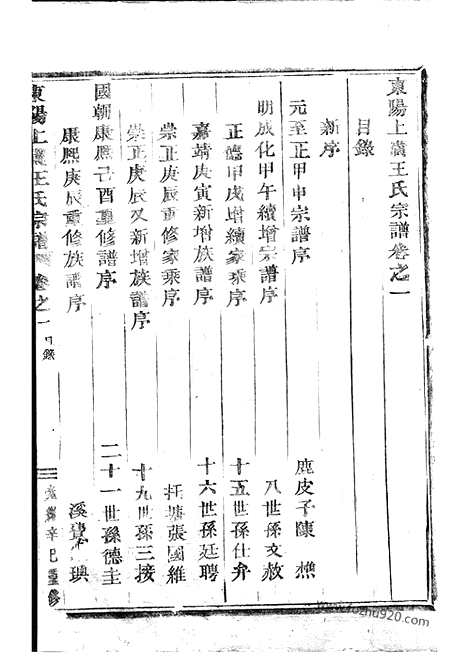 東陽上璜王氏宗譜卷之一
目錄
新序
元至正甲申宗譜序 鹿皮子陳樵
明成化甲午續增宗譜序 八世孫文赦
正德甲戌增續家乘序 十五世孫仕弁
嘉靖庚寅新增族譜序 十六世孫廷聘
崇正庚辰重修家乘序 托塘張國維
崇正庚辰又新增族譜序 十九世孫三接
國朝康熙己酉重修譜序 二十一世孫德圭
康熙庚辰重修族譜序 溪 璵
東陽上璜王氏宗譜 卷之一 目錄
辛巳重修
www.fozhu920.com